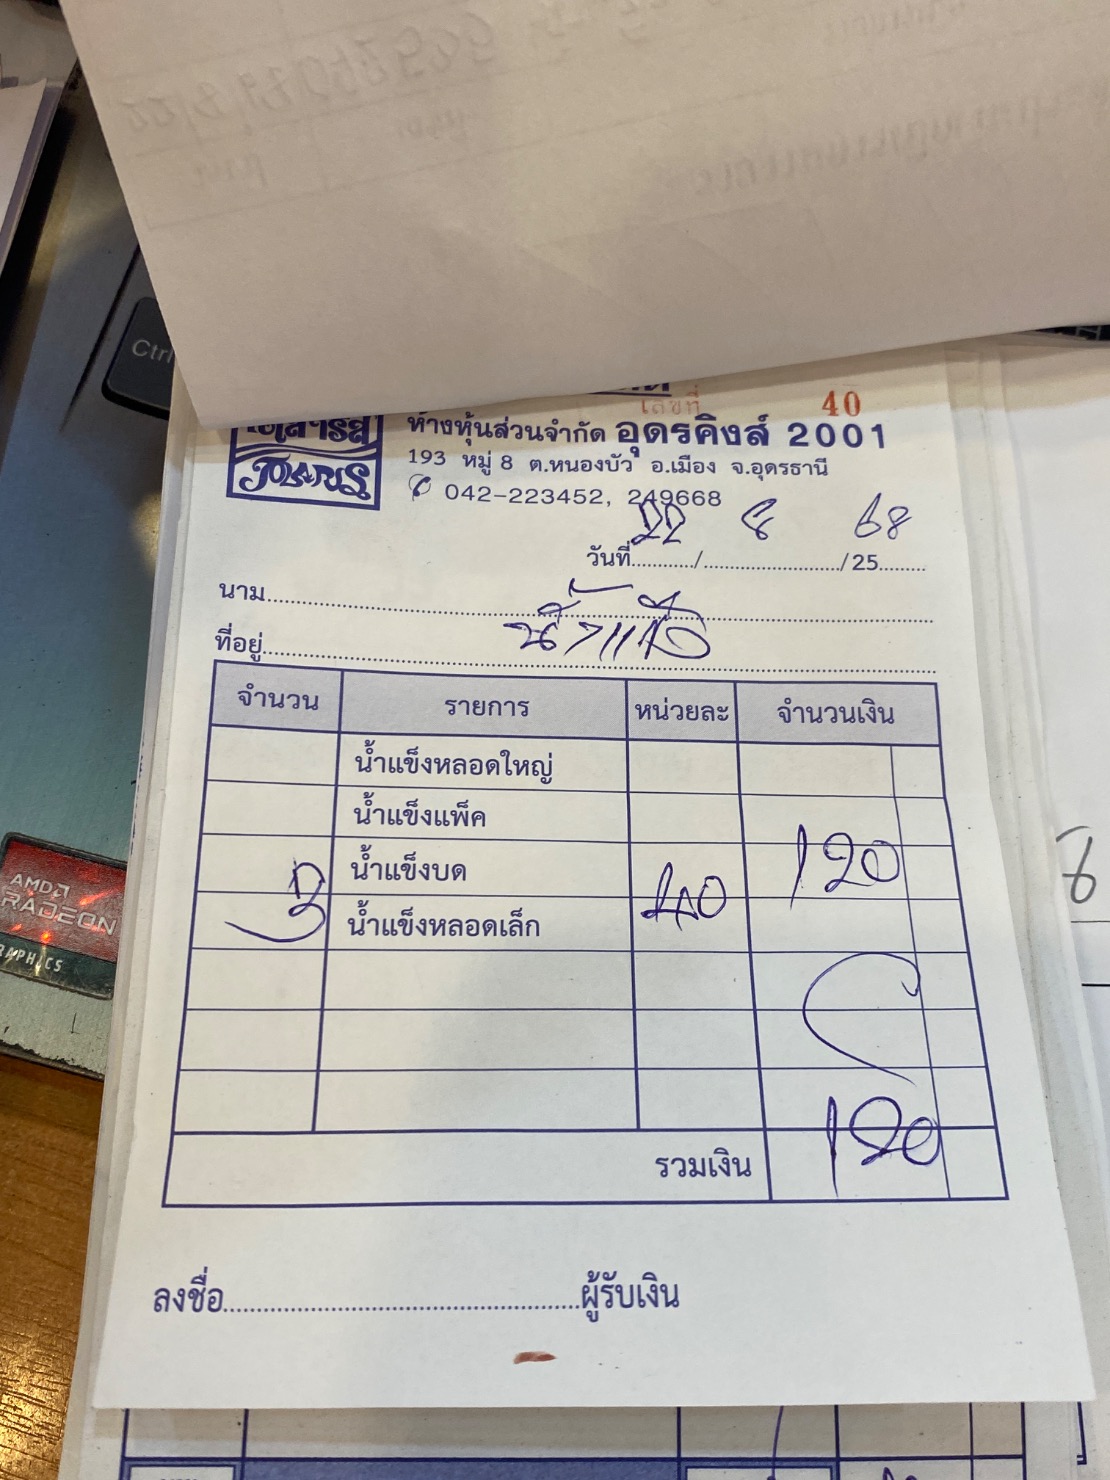 Ctrl
เลขที่ 40
โพลาริส
POLARIS
ห้างหุ้นส่วนจำกัด อุดรคิงส์ 2001
193 หมู่ 8 ต.หนองบัว อ.เมือง จ.อุดรธานี
042-223452, 249668
วันที่ 22 / 8 / 25 68
นาม
ที่อยู่
จำนวน รายการ หน่วยละ จำนวนเงิน
น้ำแข็งหลอดใหญ่
น้ำแข็งแพ็ค
น้ำแข็งบด
3 น้ำแข็งหลอดเล็ก 40 120
รวมเงิน 120
ลงชื่อ ผู้รับเงิน
AMD
RADEON
GRAPHICS
8